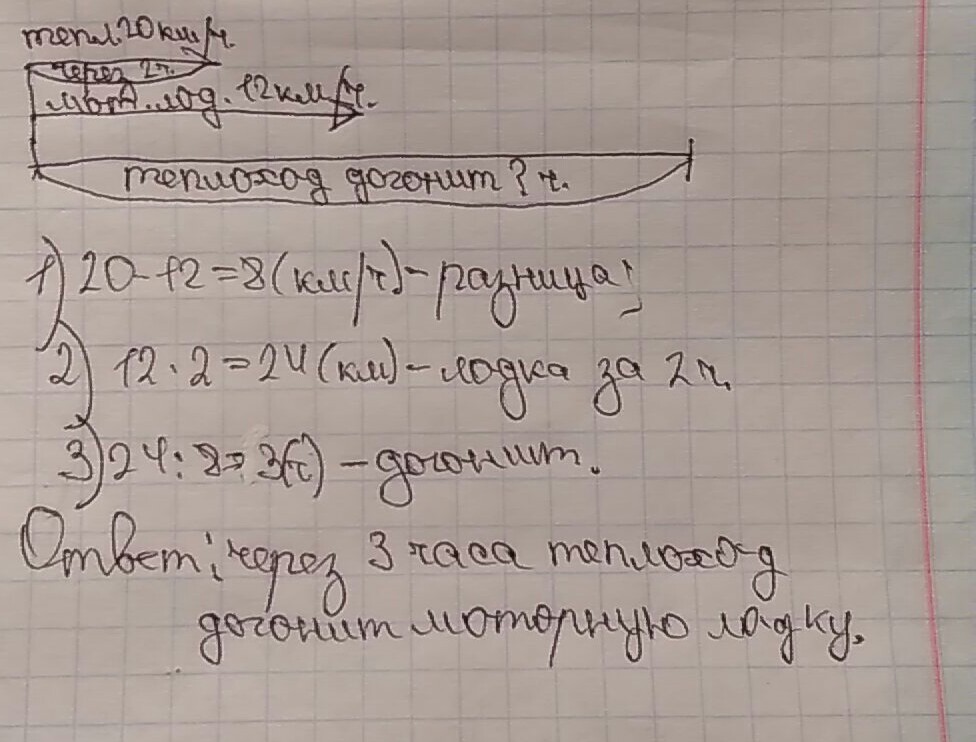 тепл. 20 км/ч.
через 2 ч.
мот. лод. 12 км/ч.
теплоход догонит ? ч.
1) 20 - 12 = 8 (км/ч) - разница;
2) 12 · 2 = 24 (км) - лодка за 2 ч.
3) 24 : 8 = 3 (ч) - догонит.
Ответ: через 3 часа теплоход
догонит моторную лодку.